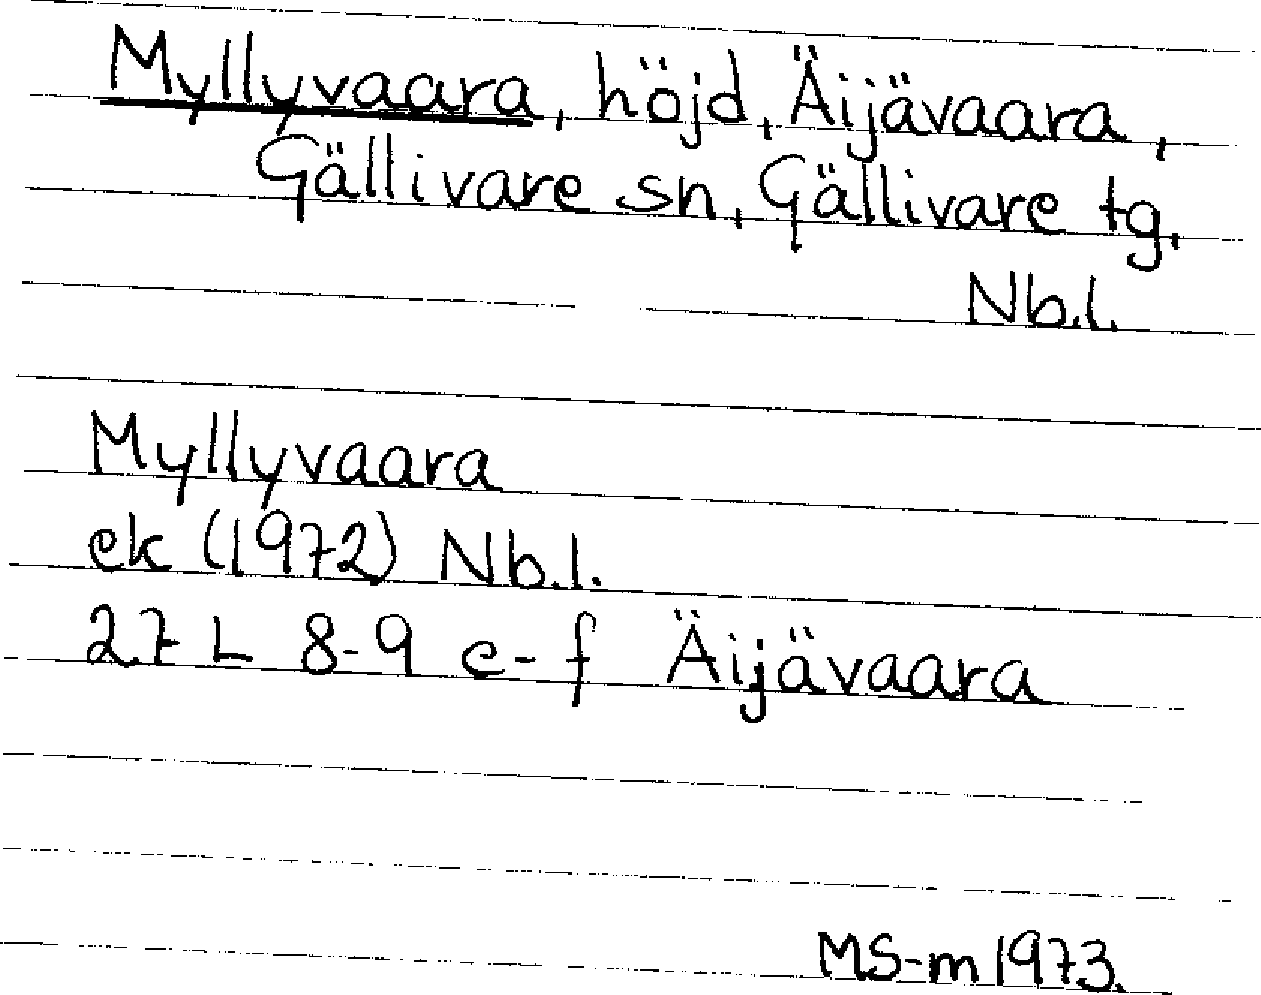 Myllyvaara, höjd, Äijävaara,
Gällivare sn, Gällivare tg,
Nb.l.
Myllyvaara
ek (1972) Nb.l.
27 L 8-9 e-f Äijävaara
MS-m 1973.